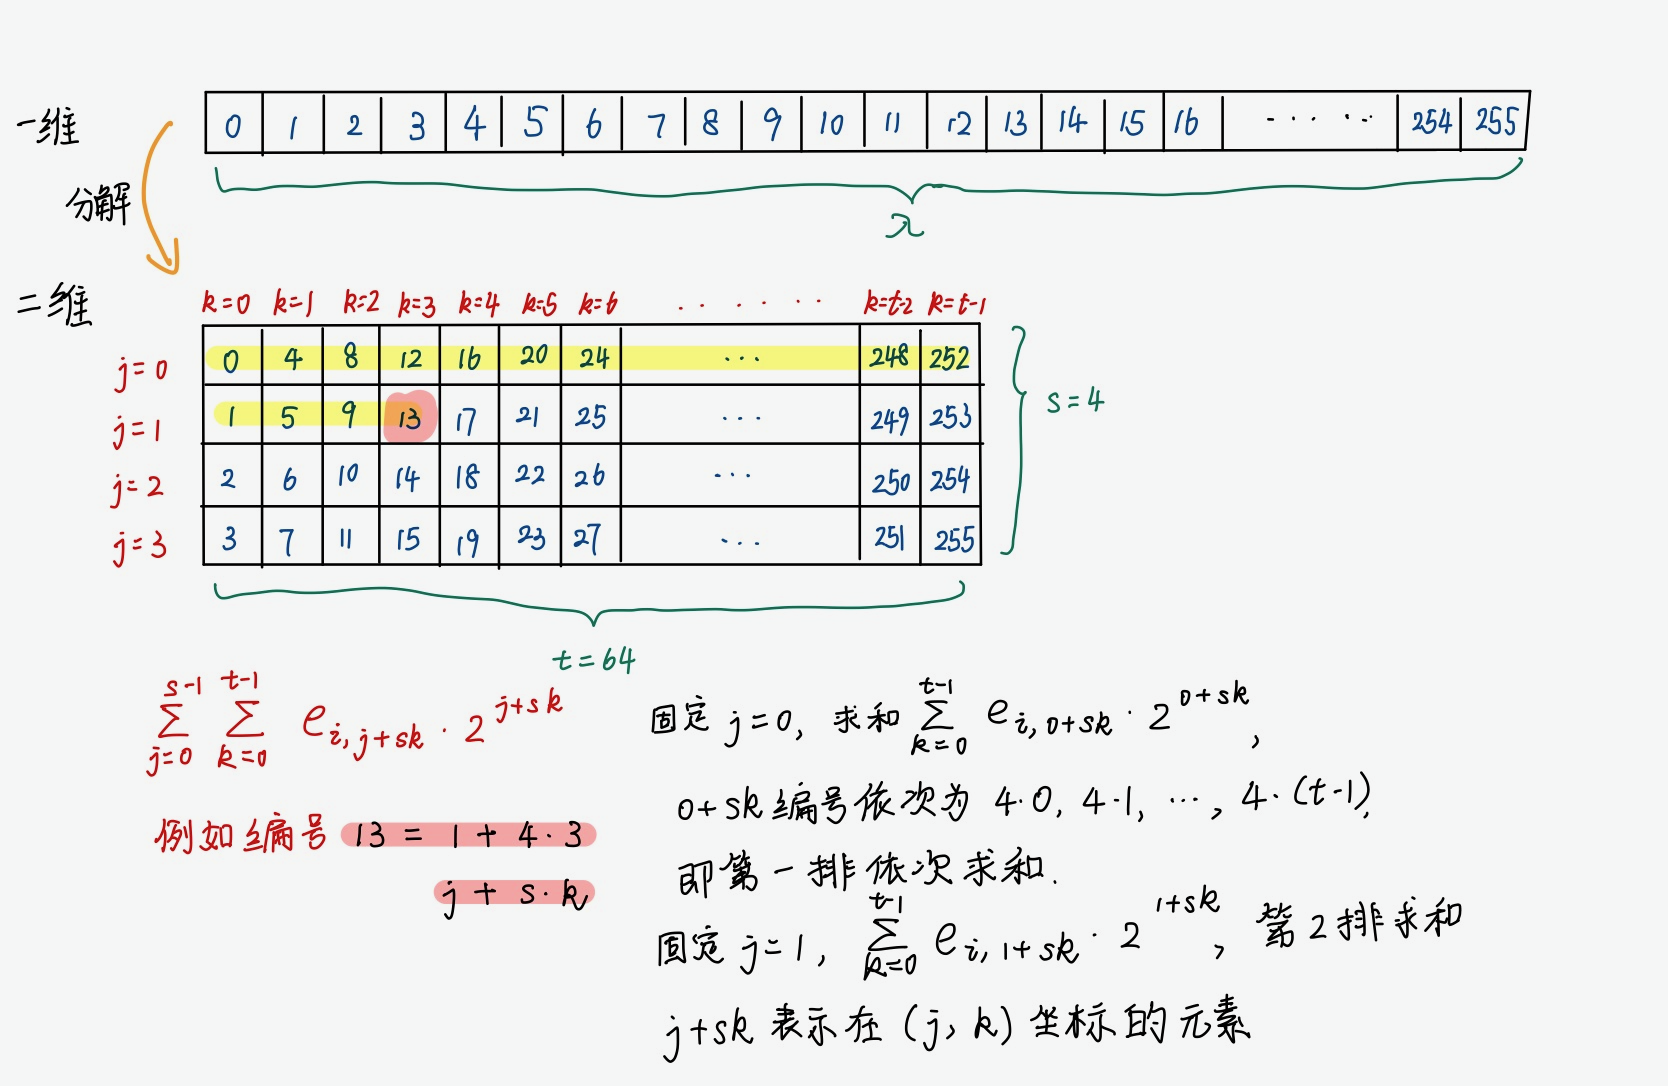 一维
0 1 2 3 4 5 6 7 8 9 10 11 12 13 14 15 16 ····· 254 255
分解
λ
二维
k=0 k=1 k=2 k=3 k=4 k=5 k=6 ····· k=t-2 k=t-1
j=0 0 4 8 12 16 20 24 ··· 248 252
j=1 1 5 9 13 17 21 25 ··· 249 253
s=4
j=2 2 6 10 14 18 22 26 ··· 250 254
j=3 3 7 11 15 19 23 27 ··· 251 255
t=64
∑_{j=0}^{s-1} ∑_{k=0}^{t-1} e_{i,j+sk} · 2^{j+sk}
例如编号 13 = 1 + 4·3
j + s·k
固定 j=0, 求和 ∑_{k=0}^{t-1} e_{i,0+sk} · 2^{0+sk},
0+sk 编号依次为 4·0, 4·1, ···, 4·(t-1),
即第一排依次求和.
固定 j=1, ∑_{k=0}^{t-1} e_{i,1+sk} · 2^{1+sk}, 第2排求和
j+sk 表示在 (j, k) 坐标的元素